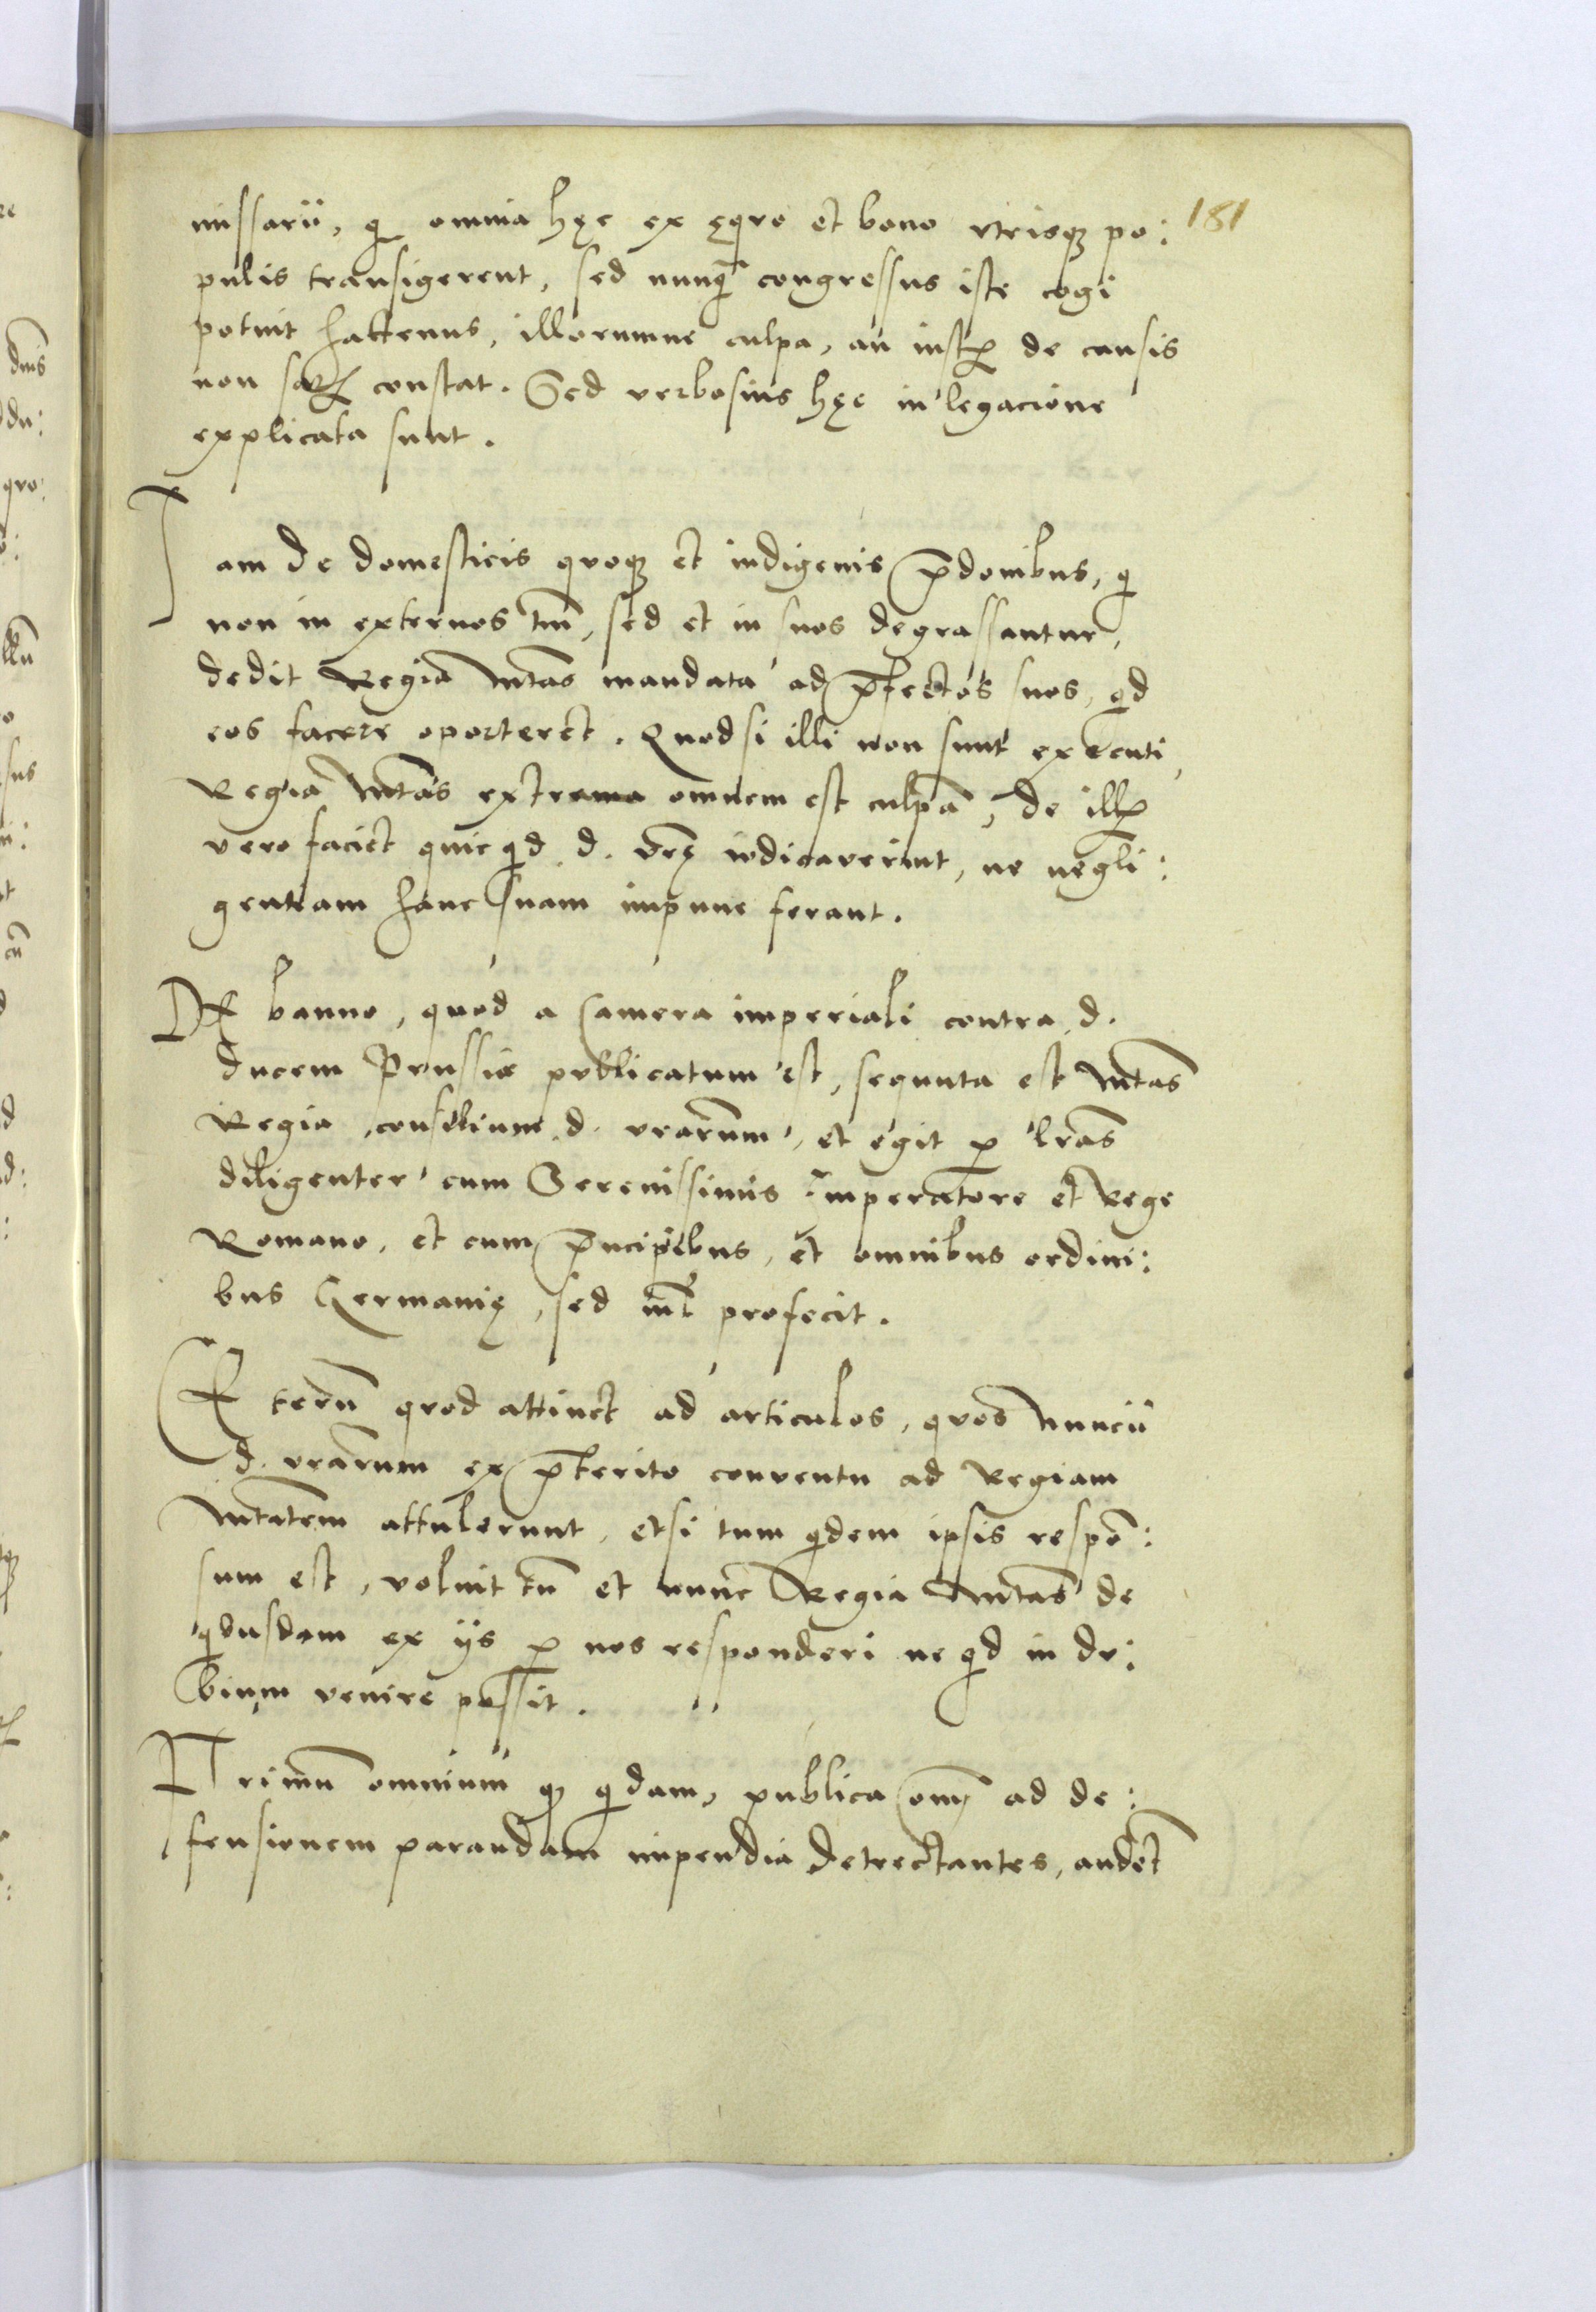 181
missarii, q omnia hęc ex ęqvo et bono vtrisqꝫ po:
pulis transigerent, sed nunq̃ congressus iste cogi
potuit hactenus, illorumne culpa, an iustꝭ de causis
non satꝭ constat. Sed verbosius hęc in legacione
explicata sunt.
Iam de domesticis qvoqꝫ et indigenis p̄donibus, q
non in externos tm̄, sed et in suos degrassantur,
dedit Regia Mtas mandata ad p̄fectos suos, qd
eos facere oporteret. Quod si illi non sunt executi,
Regia Mtas extra omnem est culpā, de illꝭ
vero faciet quicqd d. vr̄ę iudicaverint, ne negli:
gentiam hanc suam impune ferant.
DE banno, quod a Camera imperiali contra d.
ducem Prussiæ publicatum est, sequuta est Mtas
Regia consilium d. vrarum, et egit ꝑ lras
diligenter cum Serenissimis Imperatore et Rege
Romano, et cum p̄ncipibus, et omnibus ordini:
bus Germanię, sed nil profecit.
CEterū qvod attinet ad articulos, qvos Nuncii
d. vrarum ex p̄terito conventu ad Regiam
Mtatem attulerunt, etsi tum qdem ipsis respō:
sum est, voluit tn̄ et nunc Regia Mtas de
qbusdam ex ijs ꝑ nos responderi ne qd in du:
bium venire possit.
PRimū omnium qꝫ qdam, publica om̄ ad de:
fensionem parandam impendia detrectantes, audet